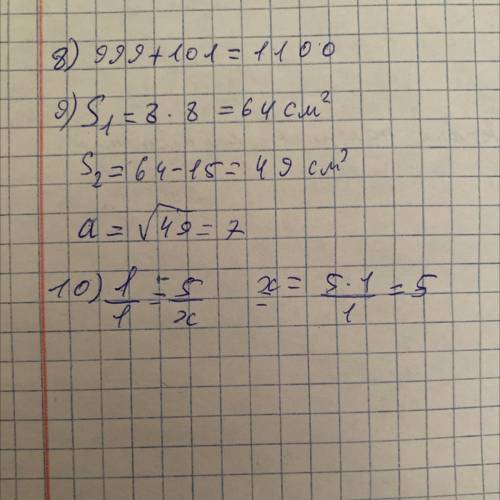 8) 999+101=1100
9) S₁=8·8=64 см²
S₂=64-15=49 см²
a=√49=7
10) 1/1=5/x x=5·1/1=5